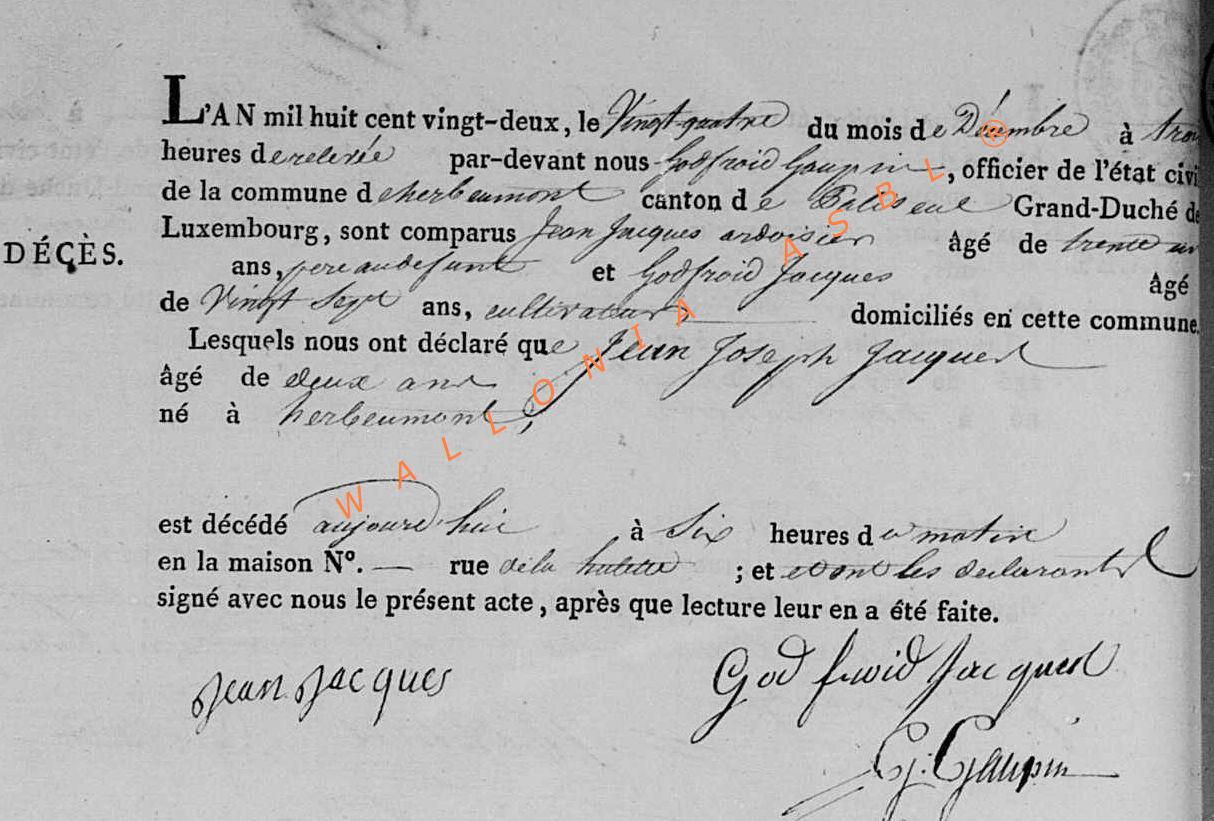 L'AN mil huit cent vingt-deux, le Vingt quatre du mois de Décembre à trois
heures de relevée par-devant nous Godfroid Gaupin, officier de l'état civi
de la commune d herbeumont canton de Paliseul Grand-Duché de
DÉCÈS.
Luxembourg, sont comparus Jean Jacques ardoisier âgé de trente un
ans, pere au defunt et Godfroid Jacques âgé
de Vingt Sept ans, cultivateur, domiciliés en cette commune.
Lesquels nous ont déclaré que Jean Joseph Jacques
âgé de deux ans
né à herbeumont,
est décédé aujourd'hui à Six heures du matin
en la maison N°. — rue de la hulette ; et et ont les declarants
signé avec nous le présent acte, après que lecture leur en a été faite.
Jean Jacques
Godfroid Jacques
G. Gaupin
WALLONIA ASBL ®